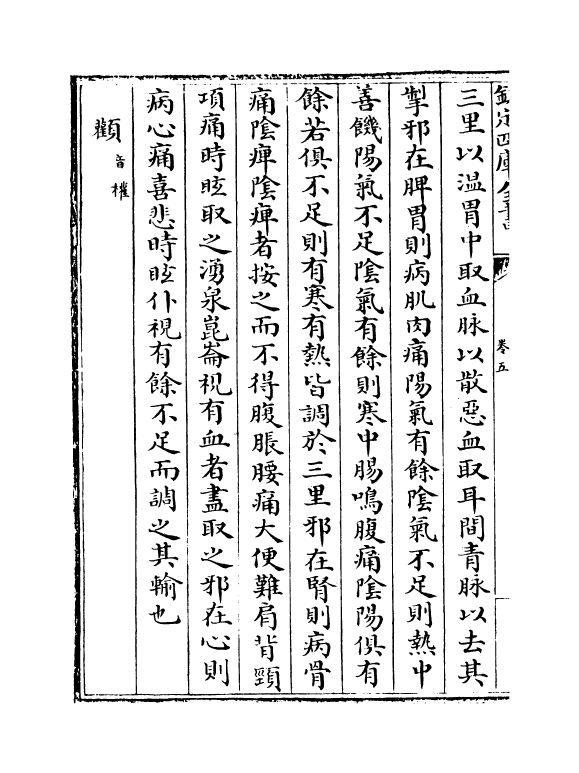 欽定四庫全書
卷五
三里以溫胃中取血脉以散惡血取耳間青脉以去其
掣邪在脾胃則病肌肉痛陽氣有餘陰氣不足則熱中
善饑陽氣不足陰氣有餘則寒中腸鳴腹痛陰陽俱有
餘若俱不足則有寒有熱皆調於三里邪在腎則病骨
痛陰痺陰痺者按之而不得腹脹腰痛大便難肩背頸
項痛時眩取之湧泉崑崙視有血者盡取之邪在心則
病心痛喜悲時眩仆視有餘不足而調之其輸也
顴音權